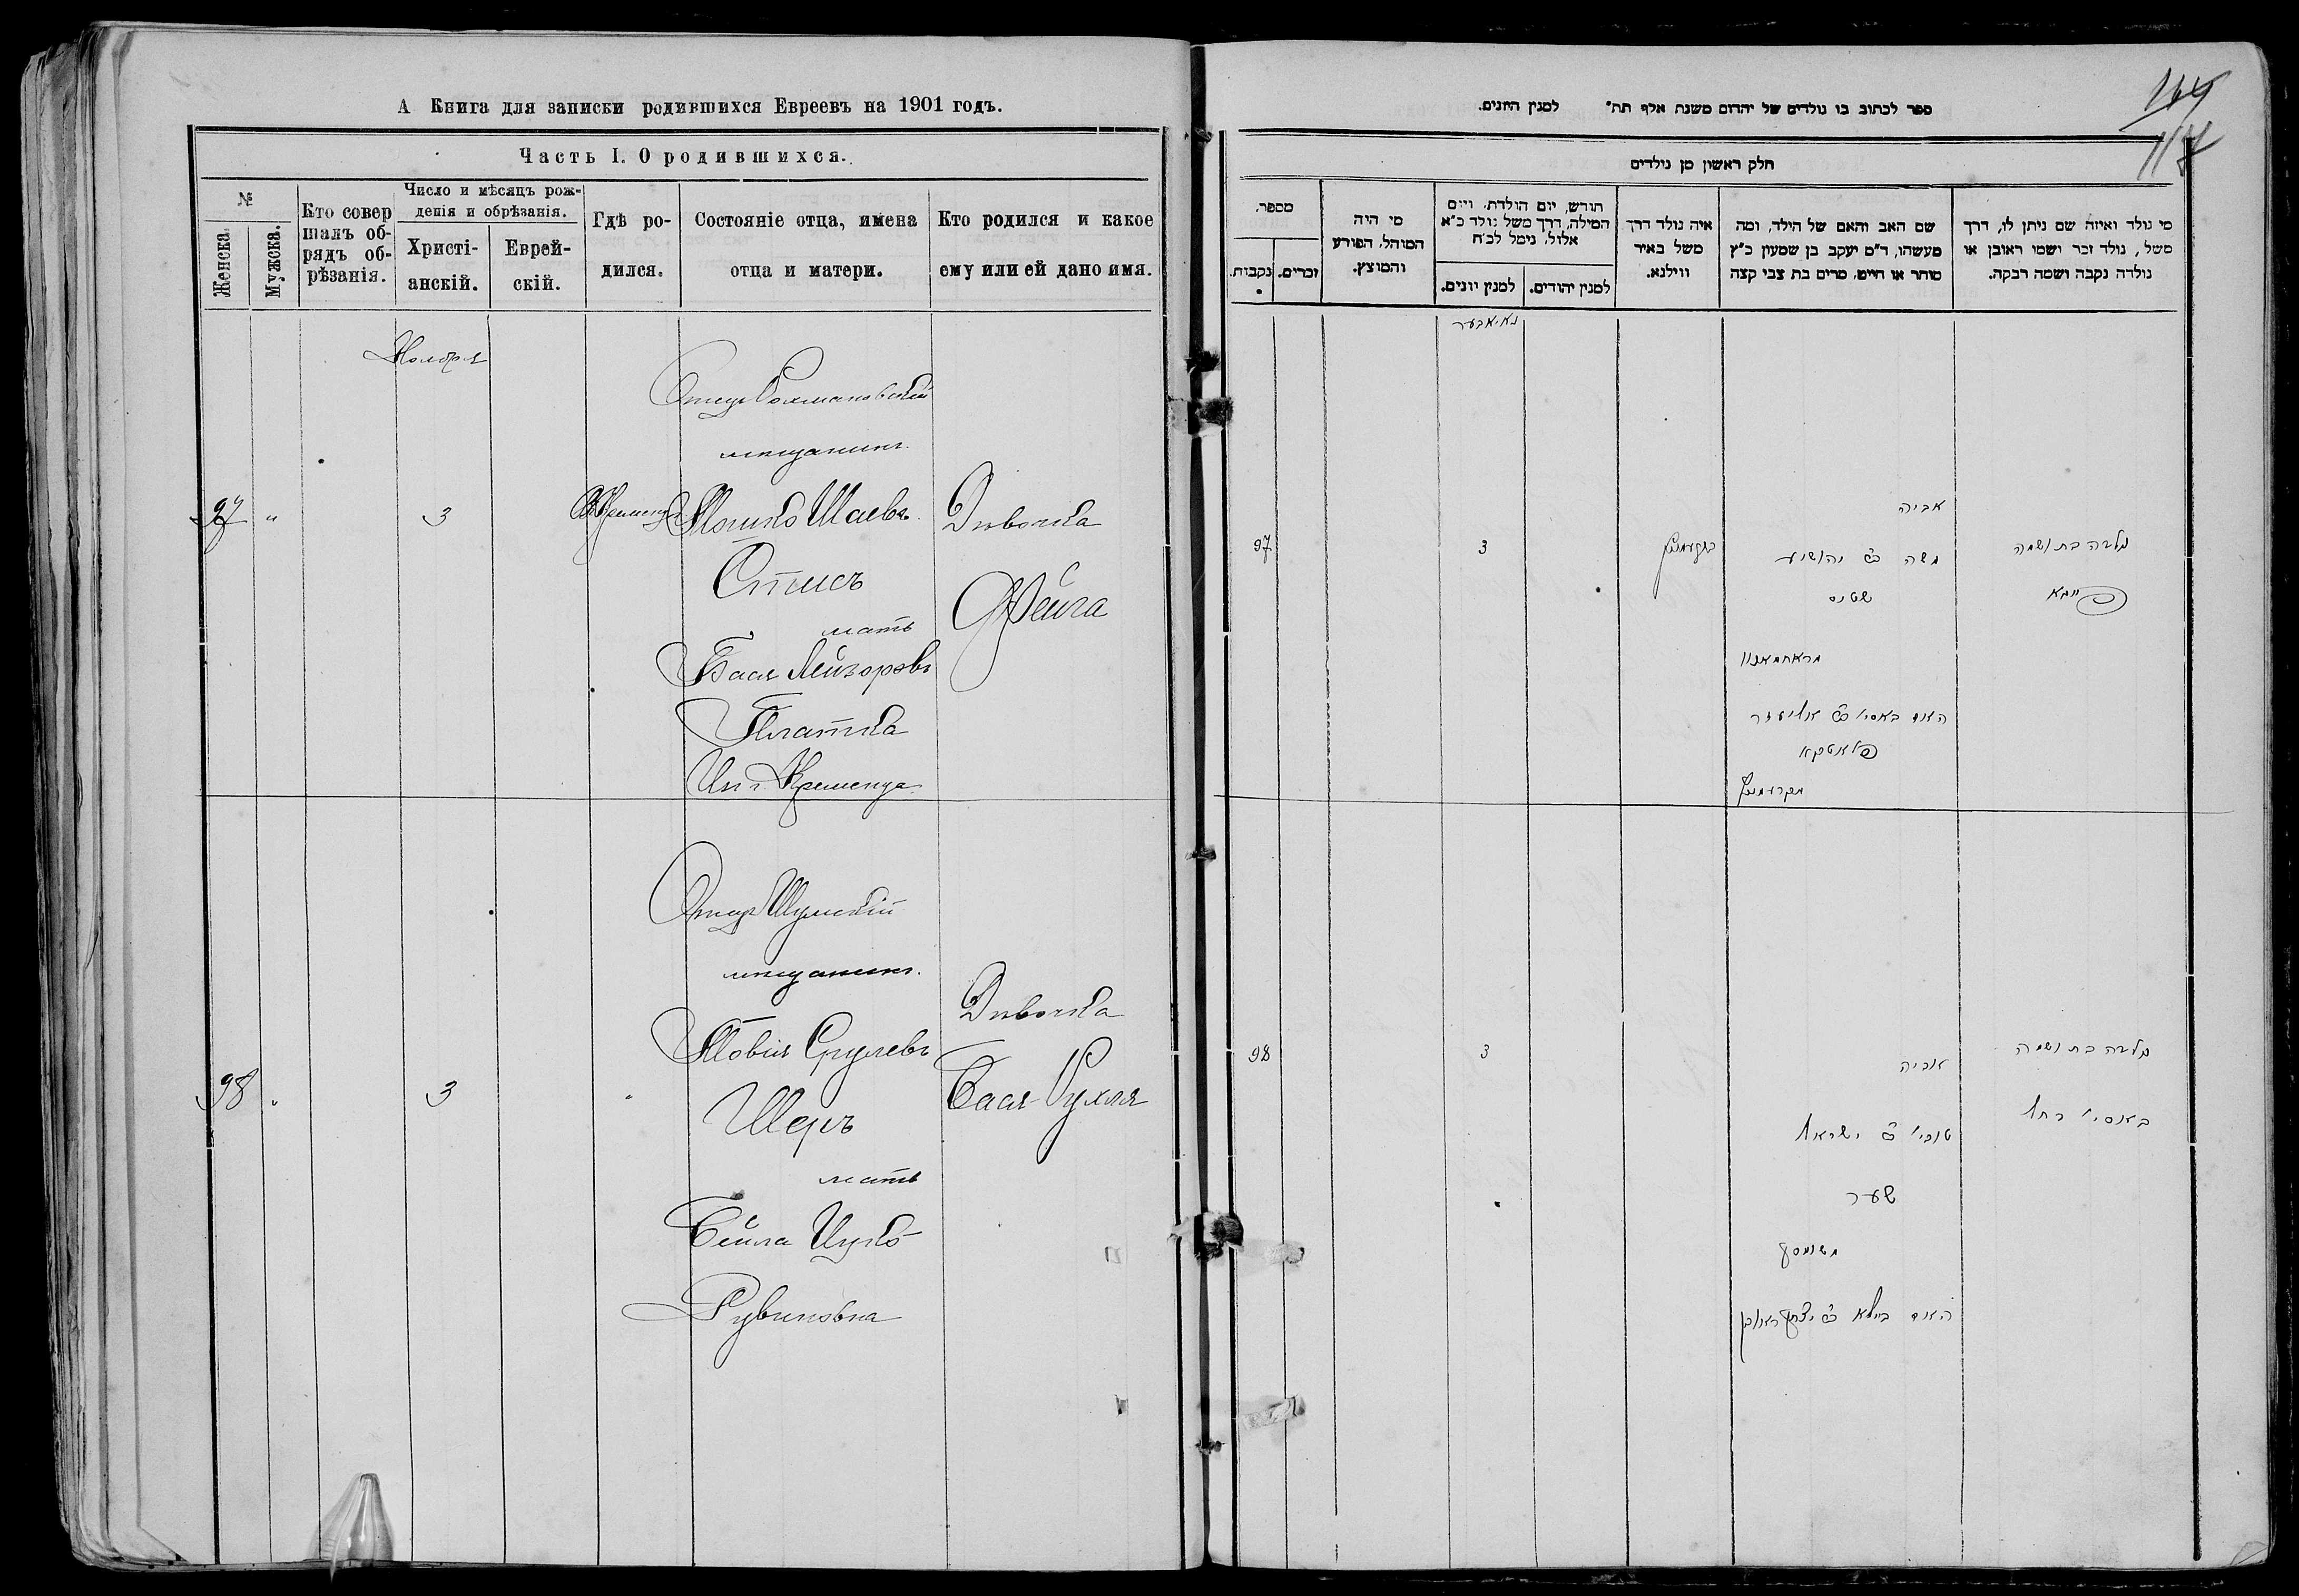 А Книга для записки родившихся Евреевъ на 1901 годъ.
Часть I. О родившихся.
№
Женска.
Мужска.
Кто совер
шалъ об-
рядъ об-
рѣзанія.
Число и мѣсяцъ рож-
денія и обрѣзанія.
Христі-
анскій.
Еврей-
скій.
Гдѣ ро-
дился.
Состояніе отца, имена
отца и матери.
Кто родился и какое
ему или ей дано имя.
Ноября
97
"
3
Кременцъ
Отецъ Рохмановскій
мещанинъ.
Мошко Шаевъ
Стисъ
мать
Бася Лейзоровъ
Платка
Из г. Кременца
Дивочка
Фейга
98
"
3
"
Отецъ Шумскій
мещанинъ.
Товія Срулевъ
Шеръ
мать
Бейла Ицко-
Рувиновна
Дивочка
Бася-Рухля
164
117
ספר לכתוב בו נולדים של יהדום משנת אלף תת״ למנין היונים.
חלק ראשון מן נולדים
מספר.
נקבות.
זכרים.
מי היה
המוהל, הפורע
והמוצץ.
חודש, יום הולדת, ויום
המילה, דרך משל נולד כ״א
אלול, נימל לכ״ח
למנין יונים.
למנין יהודים.
איה נולד דרך
משל באיר
ווילנא.
שם האב והאם של הילד, ומה
מעשהו, ד״מ יעקב בן שמעון כ״ץ
סוחר או חייט, מרים בת צבי קצה
מי נולד ואיזה שם ניתן לו, דרך
משל, נולד זכר ושמו ראובן או
נולדה נקבה ושמה רבקה.
נאיאבער
97
3
בקרעמניץ
אביה
משה ב״ר יהושיע
שטיס
מראחמאנוו
האם באסי׳ ב״ר אליעזר
פלאטקא
מקרעמניץ
נולדה בת ושמה
פייגא
98
3
אביה
טובי׳ ב״ר ישראל
שער
משומסק
האם ביילא ב״ר יצחק ראובן
נולדה בת ושמה
באסי׳ רחל